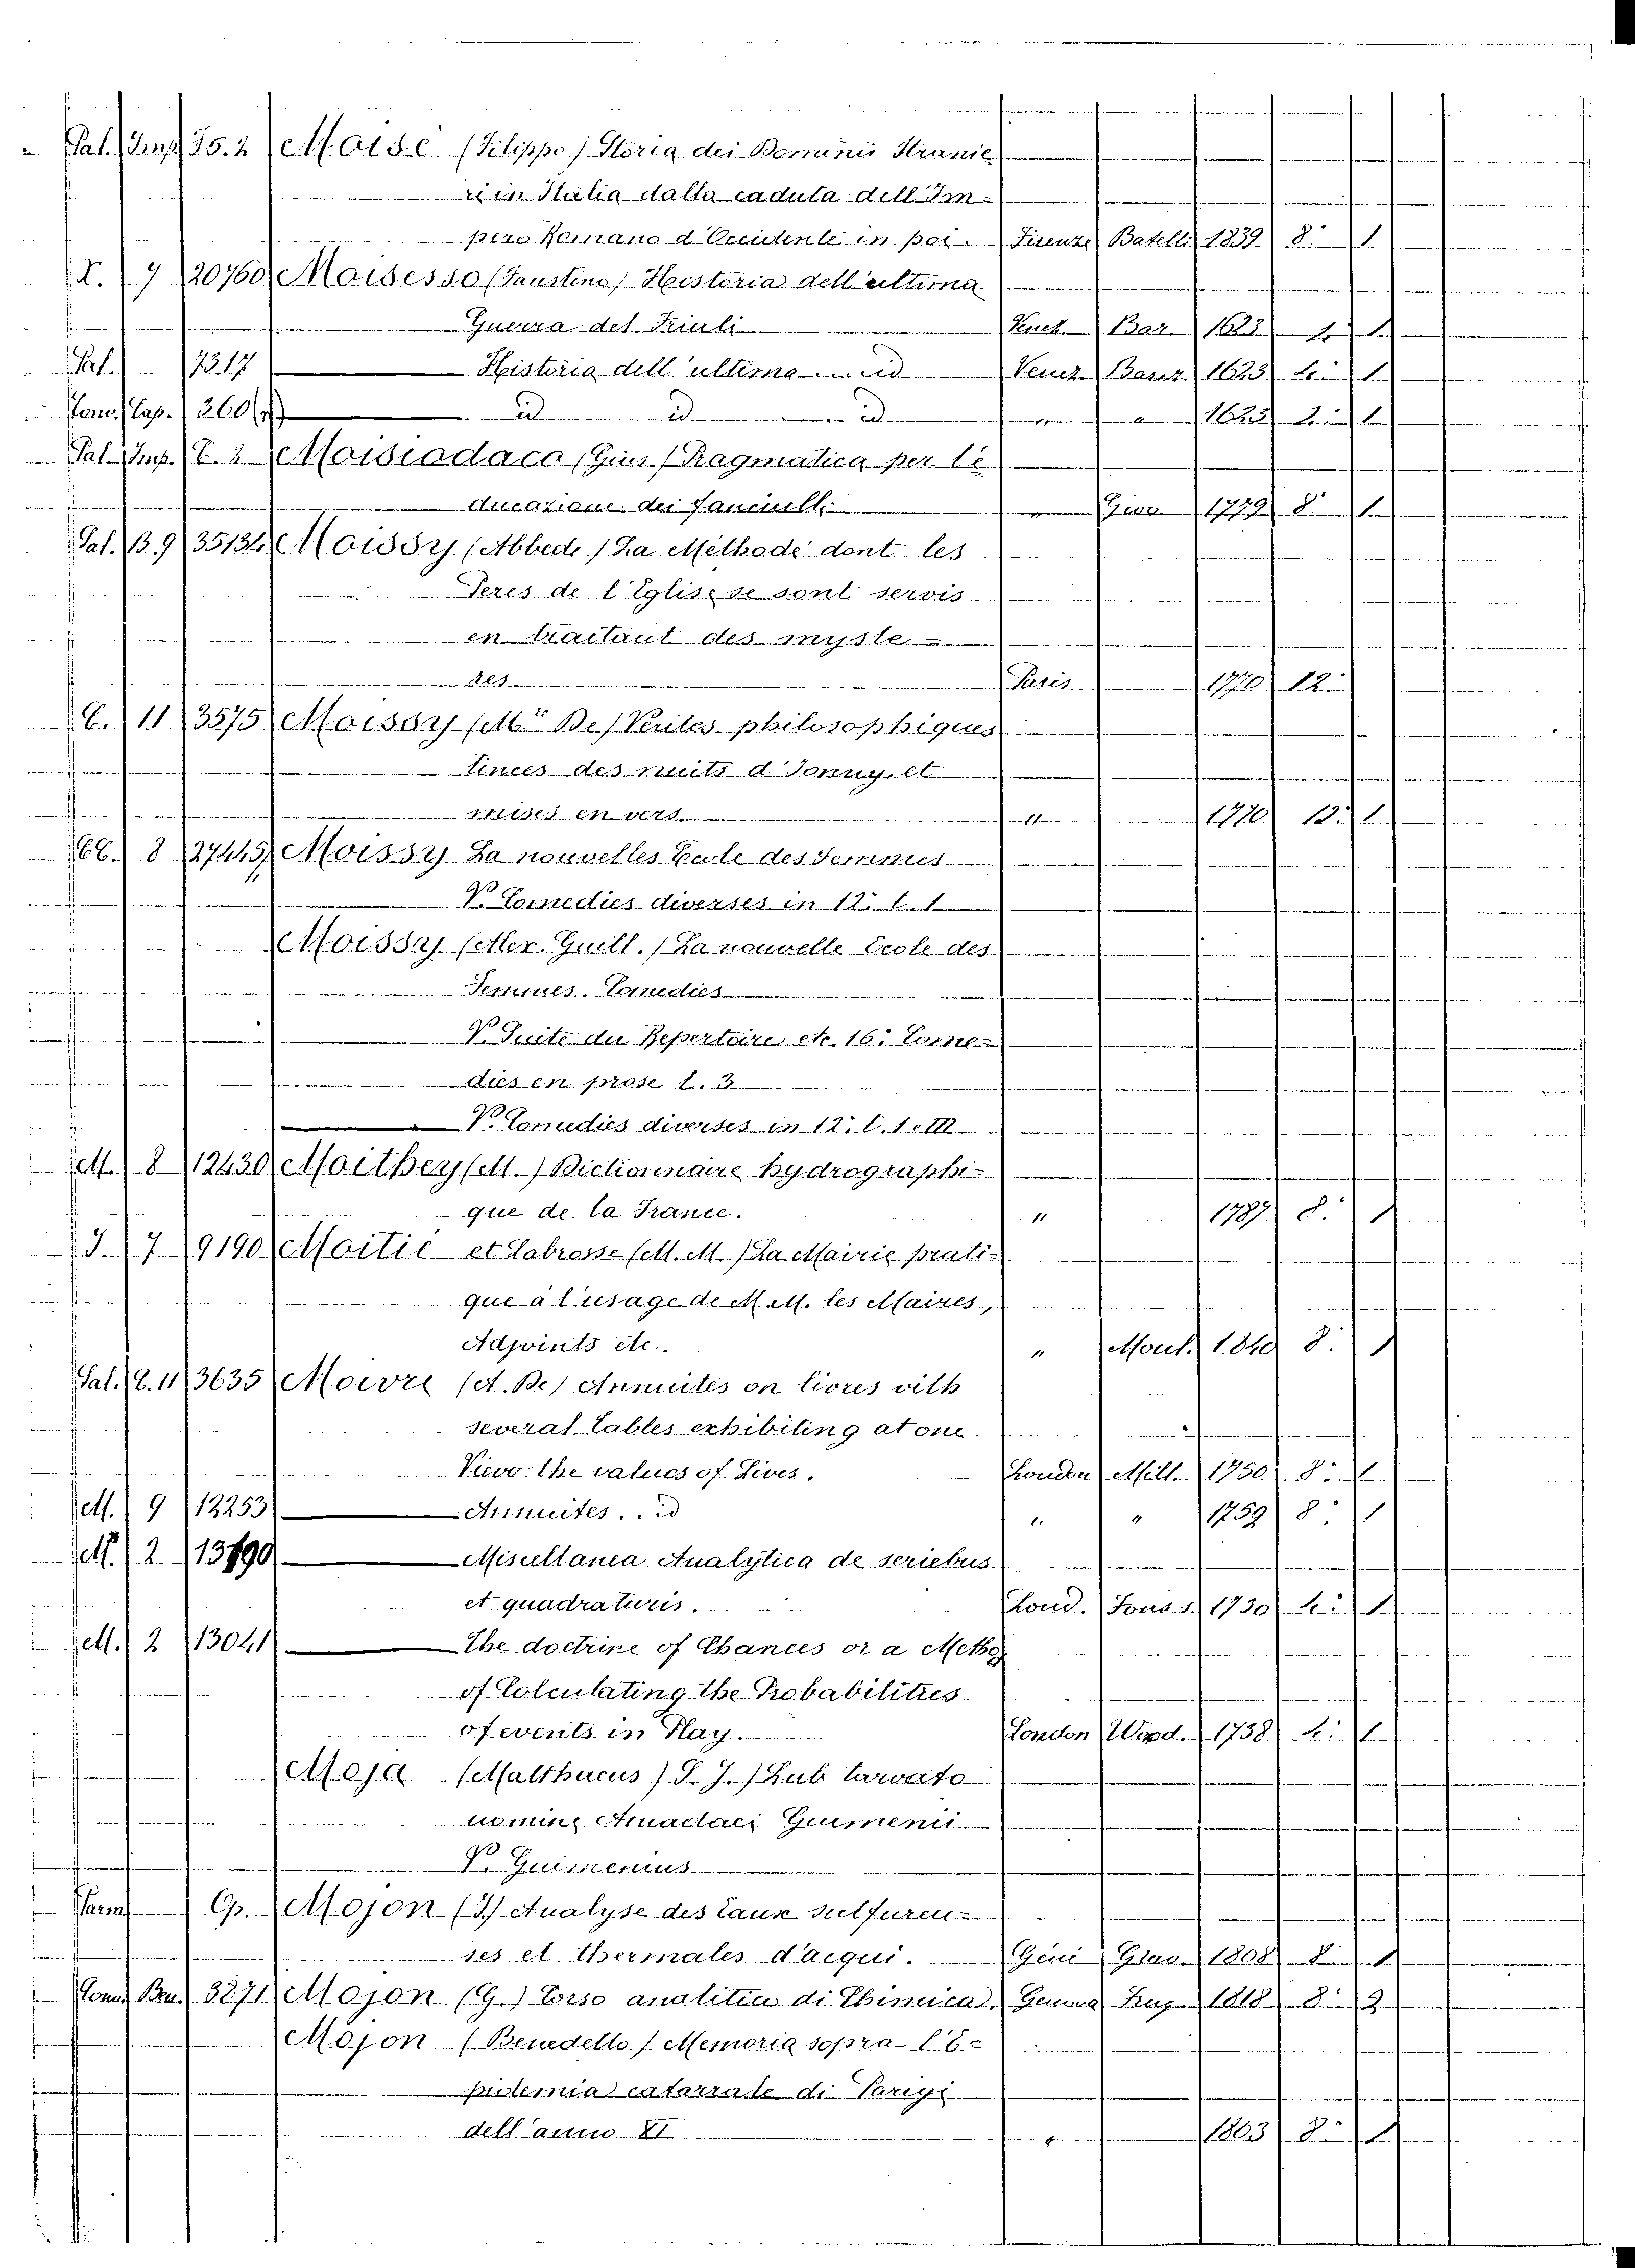 Pal. Imp. 35.2 Moise (Filippo) Storia dei Dominii Stranie
ri in Italia dalla caduta dell Im-
pero Romano d'Occidente in poi. Firenze Batelli 1839 8.° 1
X. 7 20760 Moisesso (Faustino) Historia dell'ultima
Guerra del Friuli Venet. Bar. 1623 4.° 1
Pal. 7317 Historia dell'ultima id Venet. Barez. 1623 4.° 1
Conv. Cap. 360 id id id " " 1623 4.° 1
Pal. Imp. E. 2 Moisiadaca (Gius.) Pragmatica per l'e
ducazione dei fanciulli " 1779 8.° 1
Pal. B.9 35134 Moissy (Abbede) La Méthode dont les
Peres de l'Eglise se sont servis
en traitant des myste-
res Paris 1770 12.
C. 11 3575 Moissy (Mr De) Verités philosophiques
tirées des nuits d'Jonny, et
mises en vers " 1770 12. 1
EE. 8 27445 Moissy La nouvelles Ecole des Femmes
V. Comedies diverses in 12. t. 1
Moissy (Alex. Guill.) La nouvelle Ecole des
Femmes. Comedies
V. Suite du Repertoire etc. 16. Come-
dies en prose t. 3
V. Comedies diverses in 12. t. 1. III
M. 8 12430 Moithey (M.) Dictionnaire hydrographi-
que de la France. " 1787 8. 1
J. 7 9190 Moitié et Labrosse (M. M.) La Mairie prati-
que a l'usage de M.M. les Maires,
Adjoints etc. " Mout. 1810 8. 1
Pal. E. 11 3635 Moivre (A. De) Annuites on livres vith
several tables exhibiting at one
Vievo the values of Lives. London Mill. 1750 8. 1
M. 9 12253 Annuites.. id " " 1759 8. 1
M. 2 13190 Miscellanea Analytica de seriebus
et quadraturis. Lond. Tons. 1730 4.° 1
M. 2 13041 The doctrine of Chances or a Metho
of Colculating the Probabilities
of events in Play. London Wood. 1738 4.° 1
Moja (Matthaeus) S. J.) Sub larvato
nomine Amadaei Guimenii
V. Guimenius
Farm Op. Mojon (J.) Analyse des Eaux sulfureu-
ses et thermales d'acqui. Geni Grav. 1808 8. 1
Conv. Ben. 3271 Mojon (G.) Corso analitico di Chimica. Genova 1818 8. 2
Mojon (Benedetto) Memoria sopra l'E-
pidemia catarrale di Parigi
dell'anno XI " 1803 8. 1